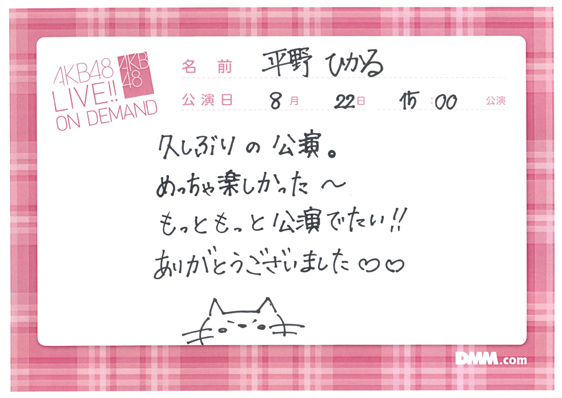 AKB48
LIVE!!
ON DEMAND
AKB
48
名前 平野 ひかる
公演日 8月 22日 15:00 公演
久しぶりの公演。
めっちゃ楽しかった〜
もっともっと公演でたい!!
ありがとうございました♡♡
DMM.com